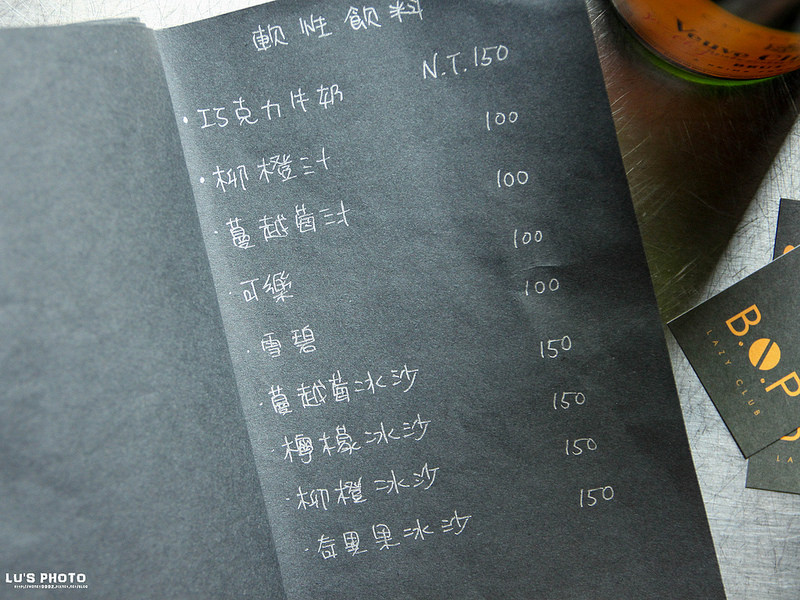 軟性飲料
·巧克力牛奶 N.T.150
·柳橙汁 100
·蔓越莓汁 100
·可樂 100
·雪碧 100
·蔓越莓冰沙 150
·檸檬冰沙 150
·柳橙冰沙 150
·奇異果冰沙 150
Veuve Cli
B.O.P
LAZY CLUB
LA
LU'S PHOTO